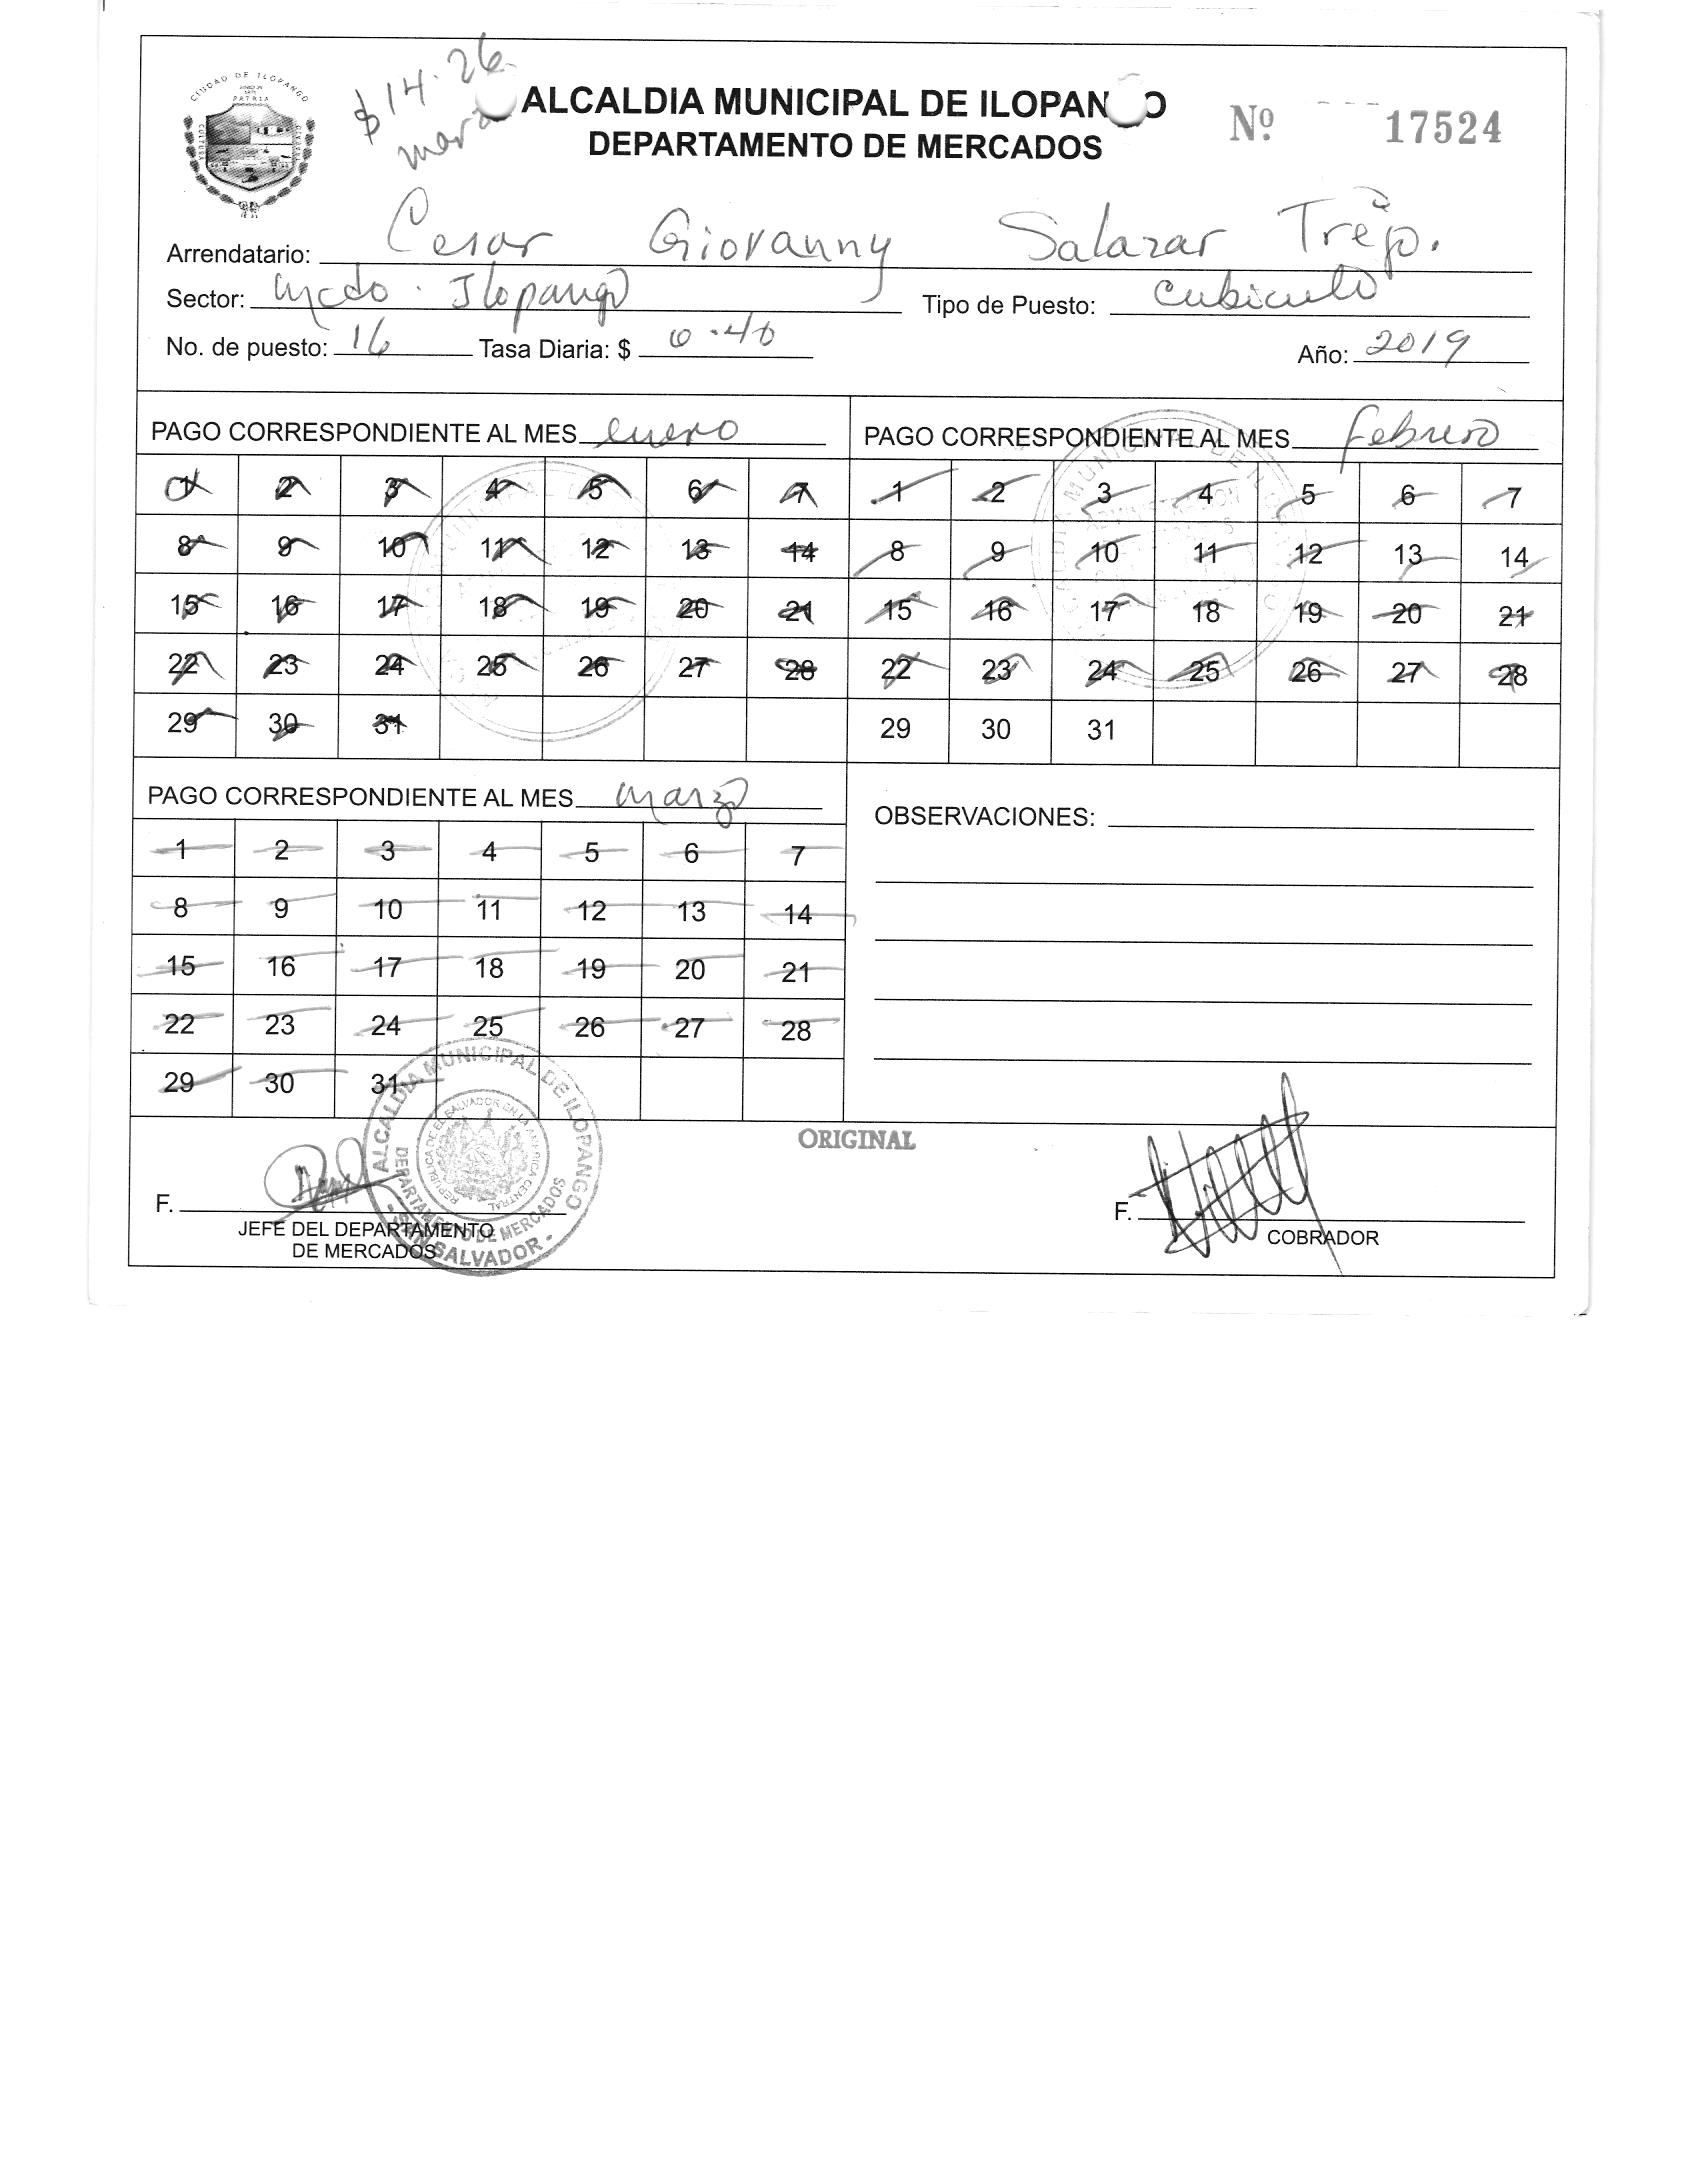 CIUDAD DE ILOPANGO
PATRIA
CULTURA
$14.26
ALCALDIA MUNICIPAL DE ILOPAN O
DEPARTAMENTO DE MERCADOS
Nº 17524
Arrendatario: Cesar Giovanny Salazar Trejo.
Sector: Mcdo. Ilopango Tipo de Puesto: Cubiculo
No. de puesto: 16 Tasa Diaria: $ 0.40 Año: 2019
PAGO CORRESPONDIENTE AL MES enero
1 2 3 4 5 6 7
8 9 10 11 12 13 14
15 16 17 18 19 20 21
22 23 24 25 26 27 28
29 30 31
PAGO CORRESPONDIENTE AL MES febrero
1 2 3 4 5 6 7
8 9 10 11 12 13 14
15 16 17 18 19 20 21
22 23 24 25 26 27 28
29 30 31
PAGO CORRESPONDIENTE AL MES marzo
1 2 3 4 5 6 7
8 9 10 11 12 13 14
15 16 17 18 19 20 21
22 23 24 25 26 27 28
29 30 31
OBSERVACIONES:
ORIGINAL
F.
JEFE DEL DEPARTAMENTO
DE MERCADOS
ALCALDIA MUNICIPAL DE ILOPANGO
REPUBLICA DE EL SALVADOR EN LA AMERICA CENTRAL
DEPARTAMENTO DE MERCADOS
- SAN SALVADOR -
F.
COBRADOR